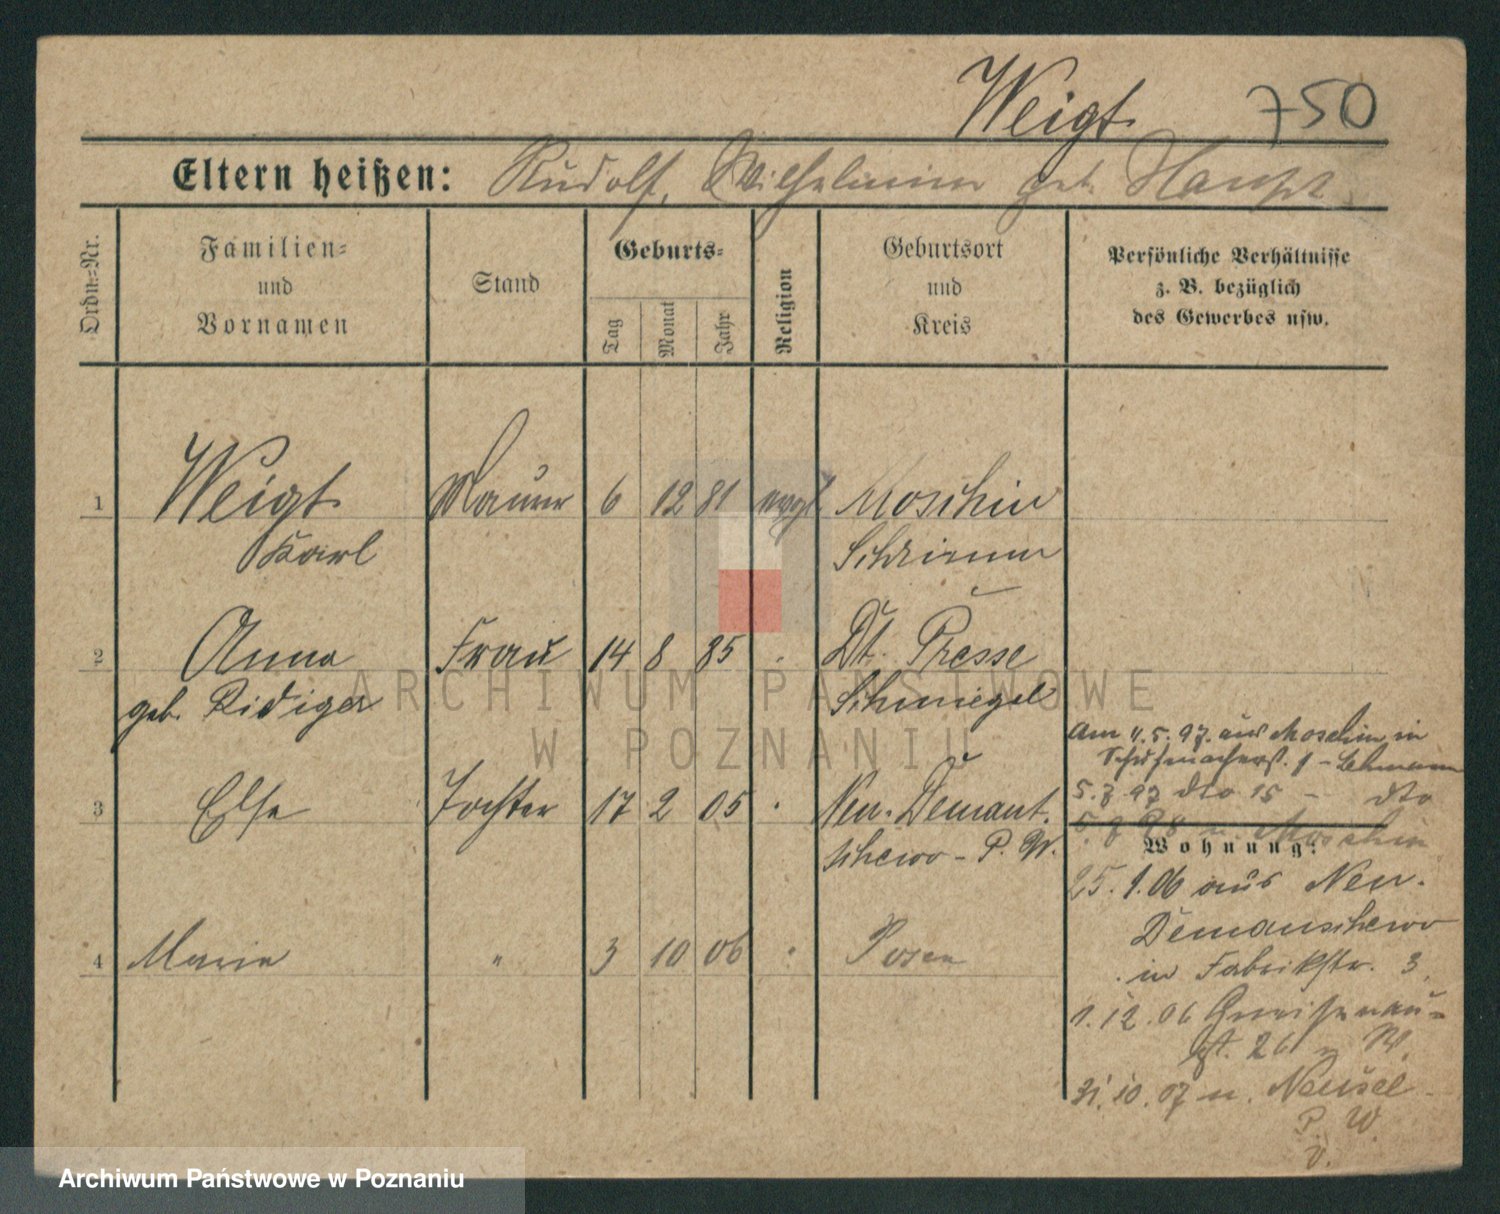 Weigt 750
Eltern heißen: Rudolf, Wilhelmine geb. Haupt
Ordn.-Nr.
Familien-
und
Vornamen
Stand
Geburts-
Tag
Monat
Jahr
Religion
Geburtsort
und
Kreis
Persönliche Verhältnisse
z. B. bezüglich
des Gewerbes usw.
1 Weigt Maurer 6 12 81 evgl. Moschin
Karl Schrimm
2 Anna Frau 14 8 85 " Dt. Presse
geb. Ridiger Schmiegel
3 Else Tochter 17 2 05 " Neu-Demant.
schewo - P. W.
4 Marie " 3 10 06 " Posen
Am 4.5.97. aus Moschin in
Schuhmacherst. 1 - Lehmann
5.7 97 dto 15 - dto
5.8 98 n. Moschin
Wohnung:
25.1.06 aus Neu-
Demanschewo
in Fabrikstr. 3
1.12.06 Gneisenau-
st. 26 W.
31.10.07 n.
P. W.
ARCHIWUM PAŃSTWOWE
W POZNANIU
Archiwum Państwowe w Poznaniu